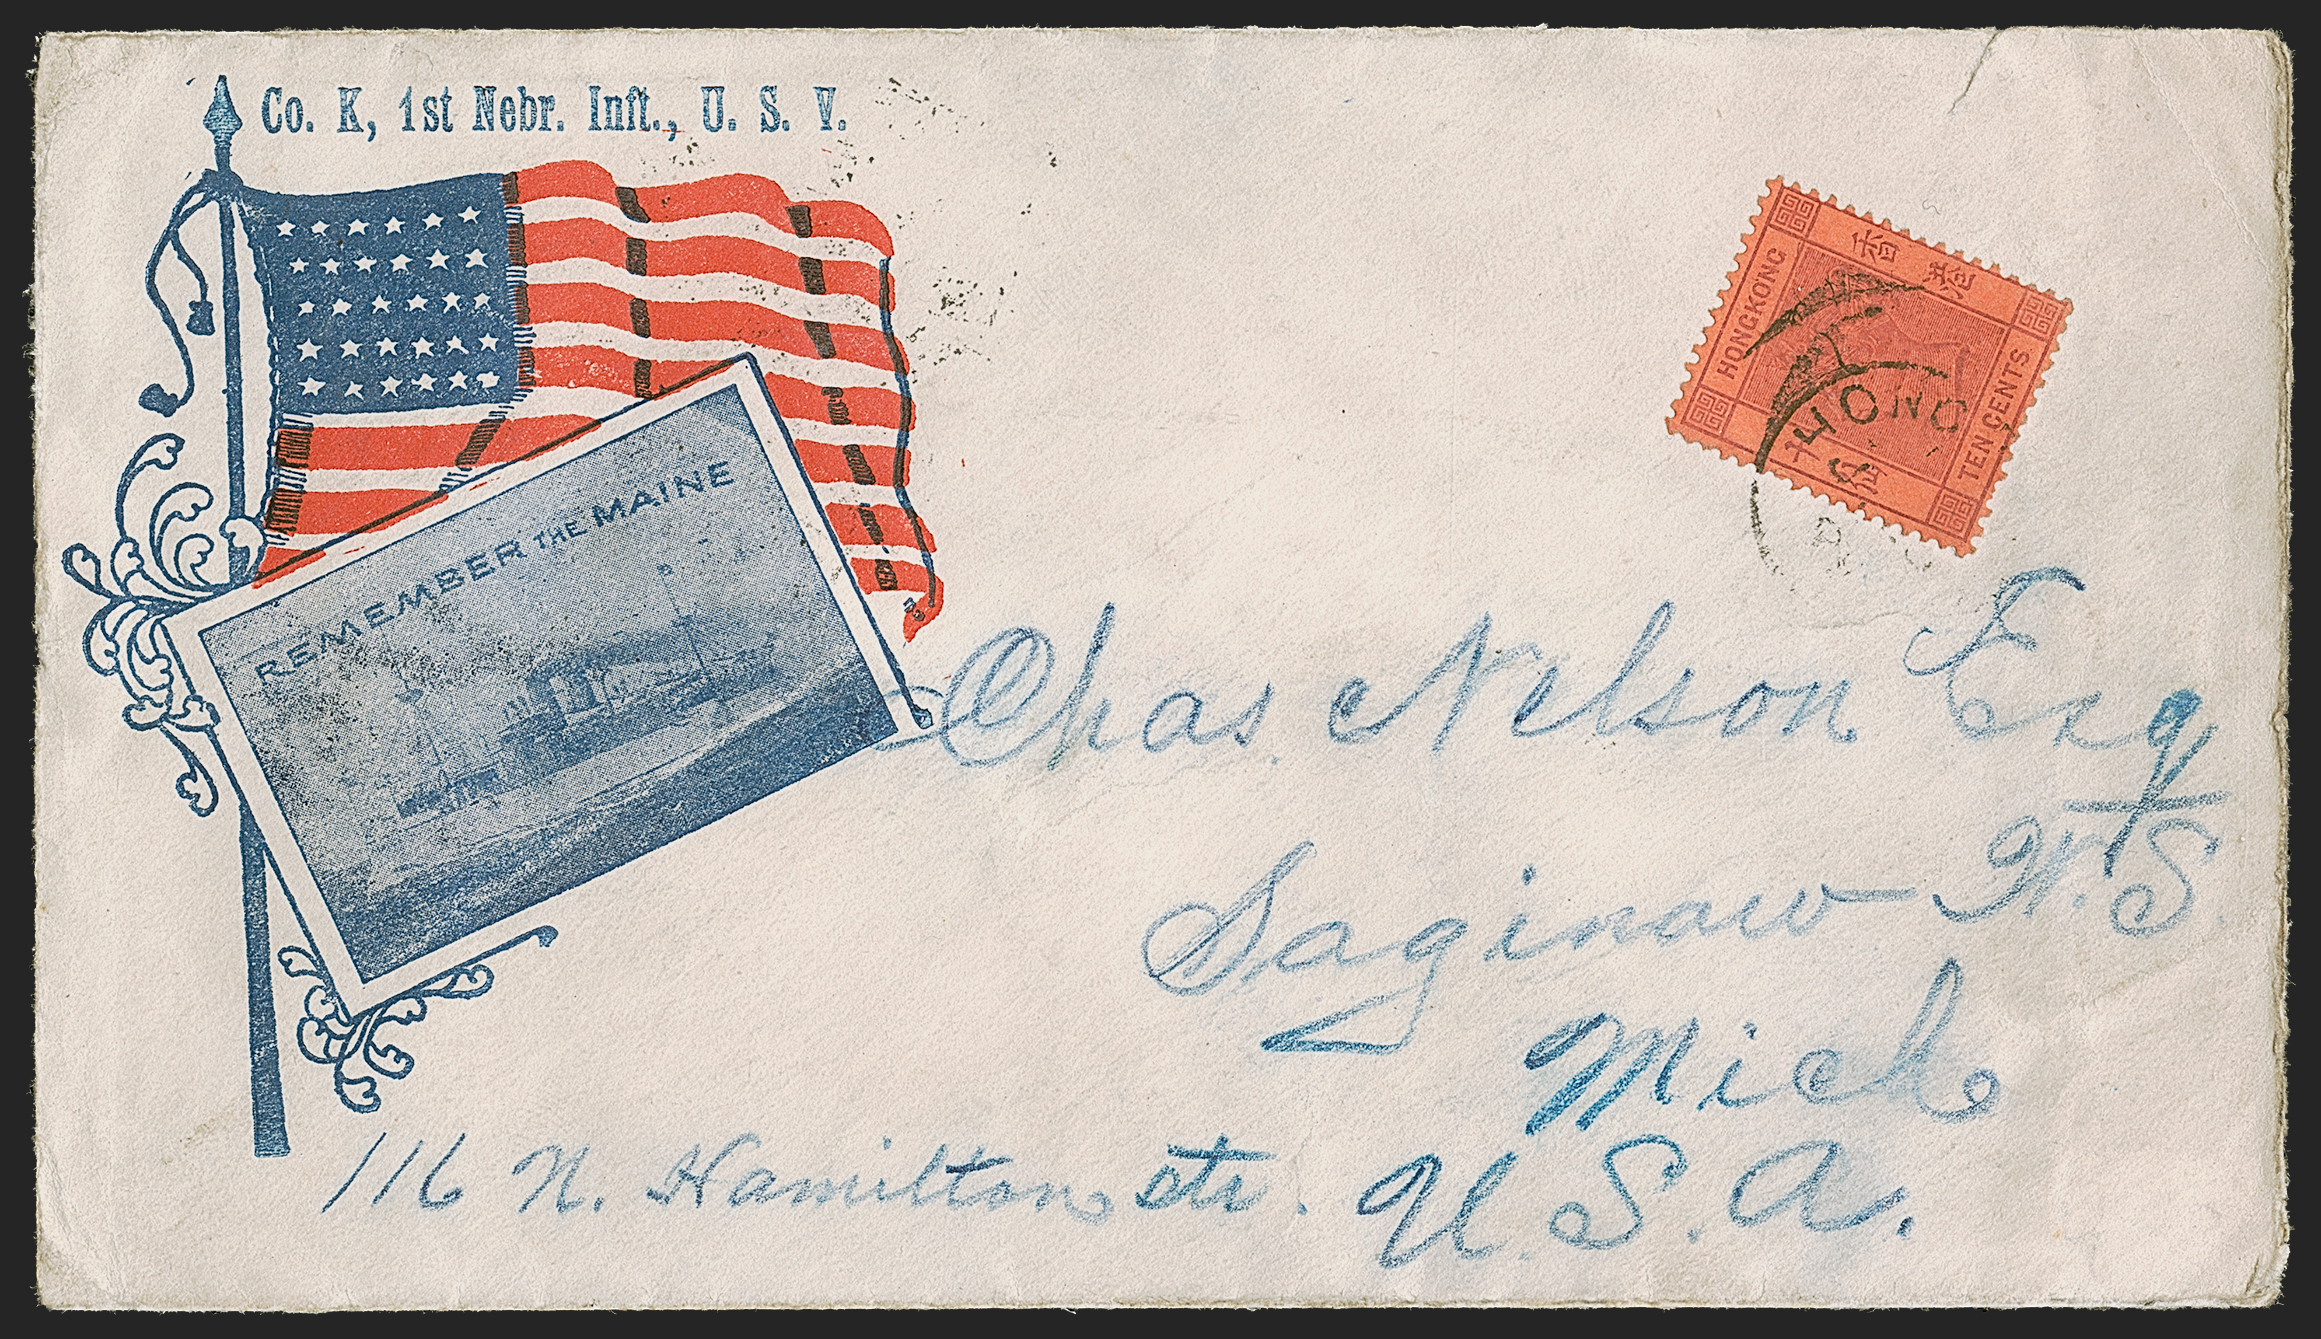 Co. K, 1st Nebr. Inft., U. S. V.
REMEMBER THE MAINE
香港
HONGKONG
TEN CENTS
HONG
Chas. Nelson Esq
Saginaw - W. S.
Mich
116 N. Hamilton str. U. S. A.